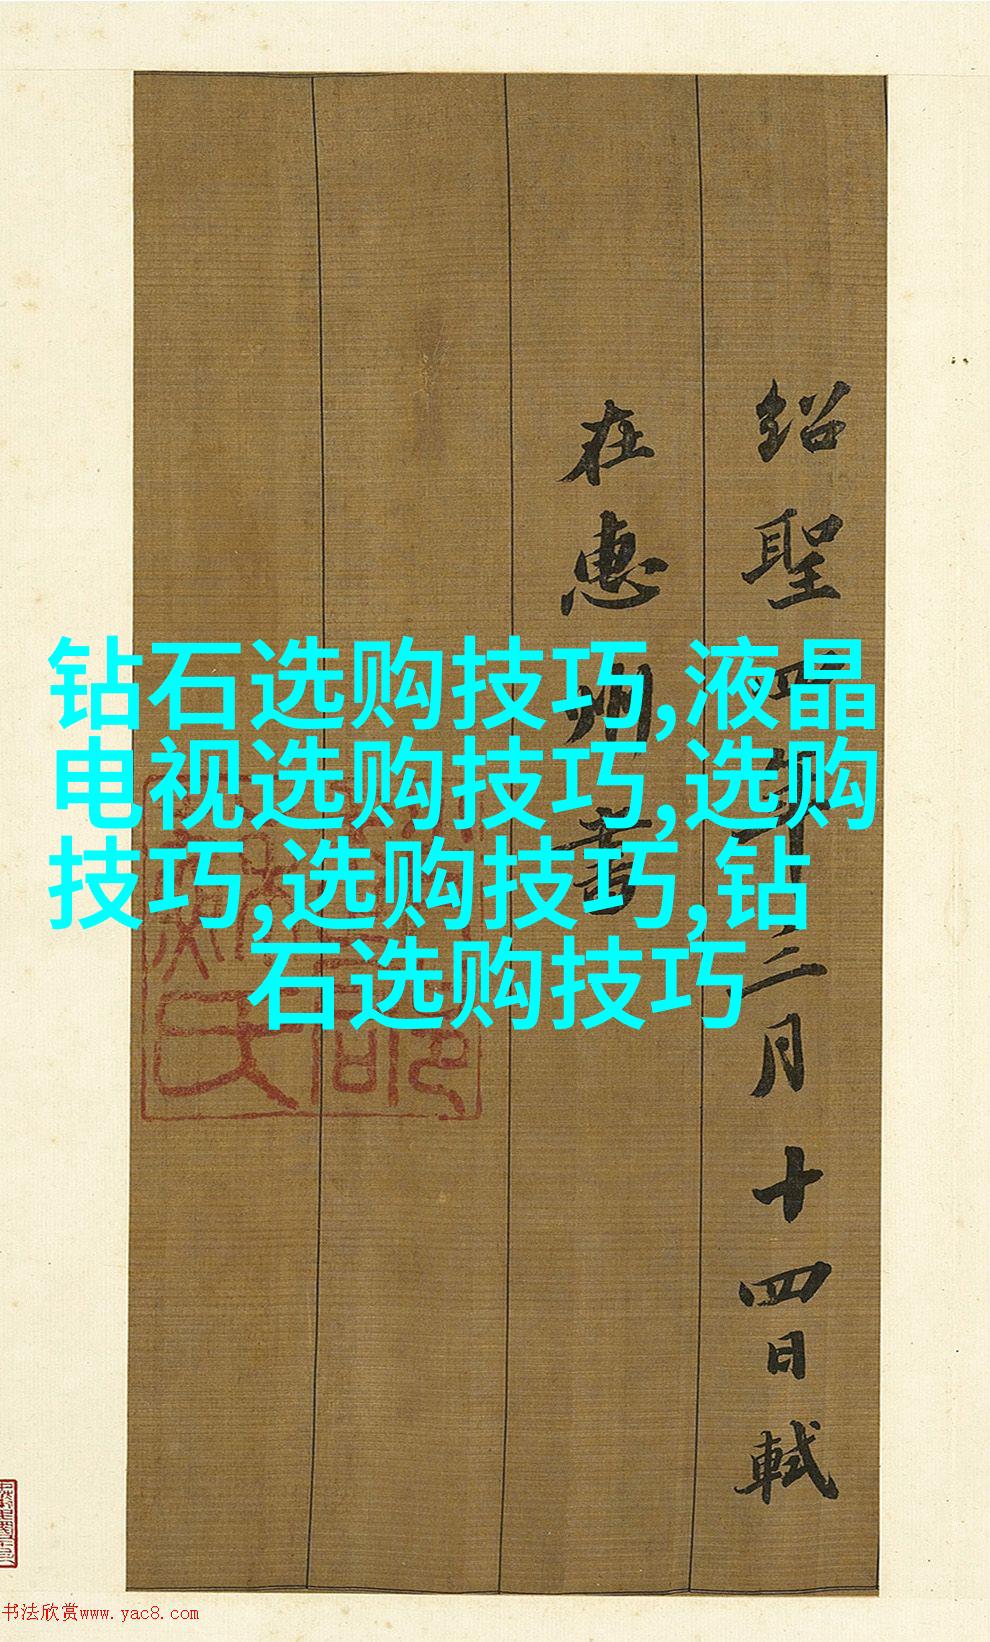 绍聖四年三月十四日軾
在惠州書
钻石选购技巧,液晶
电视选购技巧,选购
技巧,选购技巧,钻
石选购技巧
书法欣赏www.yac8.com